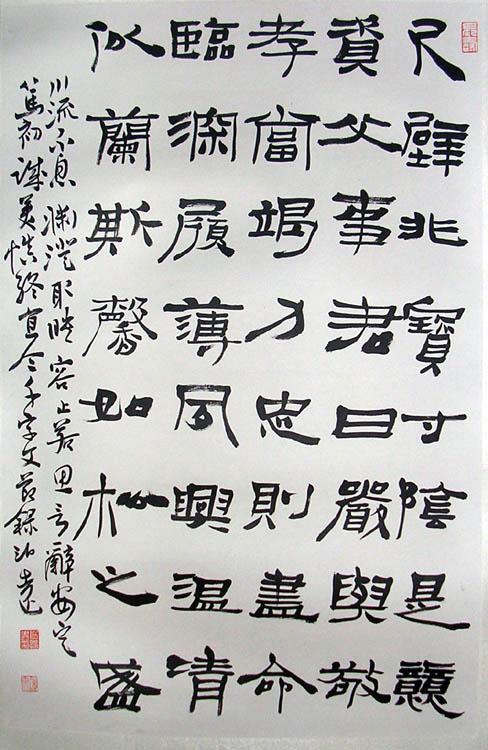 尺璧非寶寸陰是競
資父事君曰嚴與敬
孝當竭力忠則盡命
臨深履薄夙興溫凊
似蘭斯馨如松之盛
川流不息淵澄取映容止若思言辭安定
篤初誠美慎終宜令千字文節錄